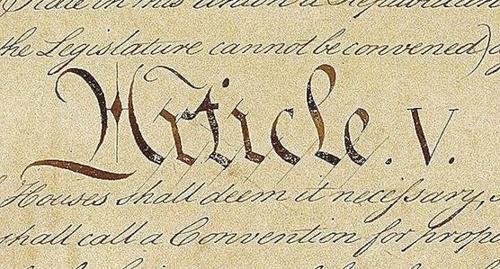 State in this Union a Republican
the Legislature cannot be convened)
Article. V.
Houses shall deem it necessary,
shall call a Convention for propo